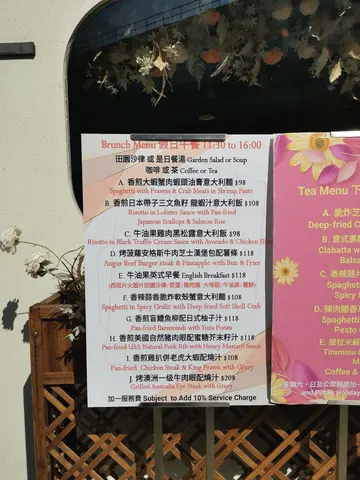 Brunch Menu 假日午餐 11:30 to 16:00
田園沙律 或 是日餐湯 Garden Salad or Soup
咖啡 或 茶 Coffee or Tea
A. 香煎大蝦蟹肉蝦頭油膏意大利麵 $98
Spaghetti with Prawns & Crab Meats in Shrimp Paste
B. 香煎日本帶子三文魚籽 龍蝦汁意大利飯 $108
Risotto in Lobster Sauce with Pan-fried
Japanese Scallops & Salmon Roe
C. 牛油果雞肉黑松露意大利飯 $98
Risotto in Black Truffle Cream Sauce with Avocado & Chicken
D. 烤菠蘿安格斯牛肉芝士漢堡包配薯條 $118
Angus Beef Burger steak & Pineapple with Bun & Fries
E. 牛油果英式早餐 English Breakfast $118
F. 香辣蒜香脆炸軟殼蟹意大利麵 $108
Spaghetti in Spicy Garlic with Deep-fried Soft Shell Crab
G. 香煎盲鰽魚柳配日式柚子汁 $118
Pan-fried Barramundi with Yuzu Ponzu
H. 香煎美國自然豬肉眼配蜜糖芥末籽汁 $118
Pan-fried USA Natural Pork Rib with Honey Mustard Sauce
I. 香煎雞扒伴老虎大蝦配燒汁 $108
Pan-fried Chicken Steak & King Prawn with Gravy
J. 烤澳洲一級牛肉眼配燒汁 $208
Grilled Australia Eye Steak with Gravy
加一服務費 Subject to Add 10% Service Charge
Tea Menu 下
A. 脆炸芝
Deep-fried C
B. 意式黑
Ciabatta w
Balsa
C. 香辣蒜
Spaghetti
D. 辣肉腸香
Spaghetti
Pesto
E. 提拉米
Tiramisu
Coffee &